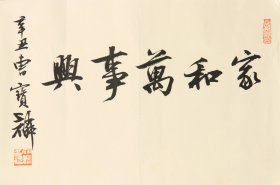 家和萬事興
辛丑曹寶麟